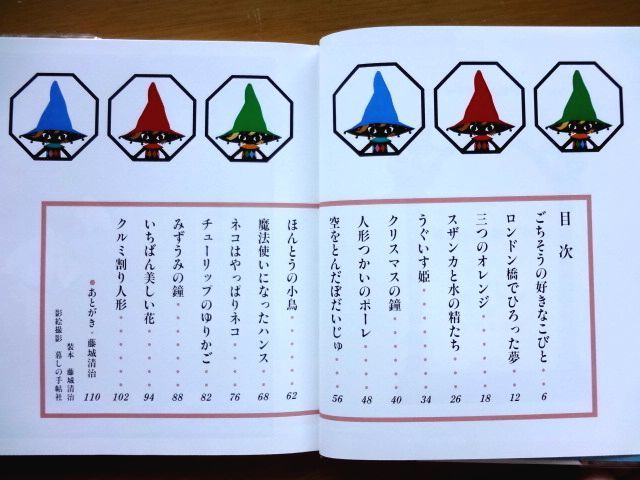 目次
ごちそうの好きなこびと・・6
ロンドン橋でひろった夢・・12
三つのオレンジ・・・・・18
スザンカと水の精たち・・・26
うぐいす姫・・・・・・・34
クリスマスの鐘・・・・・40
人形つかいのポーレ・・・48
空をとんだぼだいじゅ・・56
ほんとうの小鳥・・・・・62
魔法使いになったハンス・・68
ネコはやっぱりネコ・・・76
チューリップのゆりかご・・82
みずうみの鐘・・・・・・88
いちばん美しい花・・・・94
クルミ割り人形・・・・・102
●あとがき・藤城清治 110
装本 藤城清治
影絵撮影 暮しの手帖社